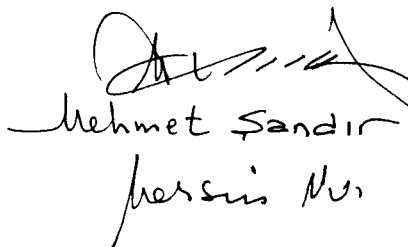 Mehmet Şandır
Mersin